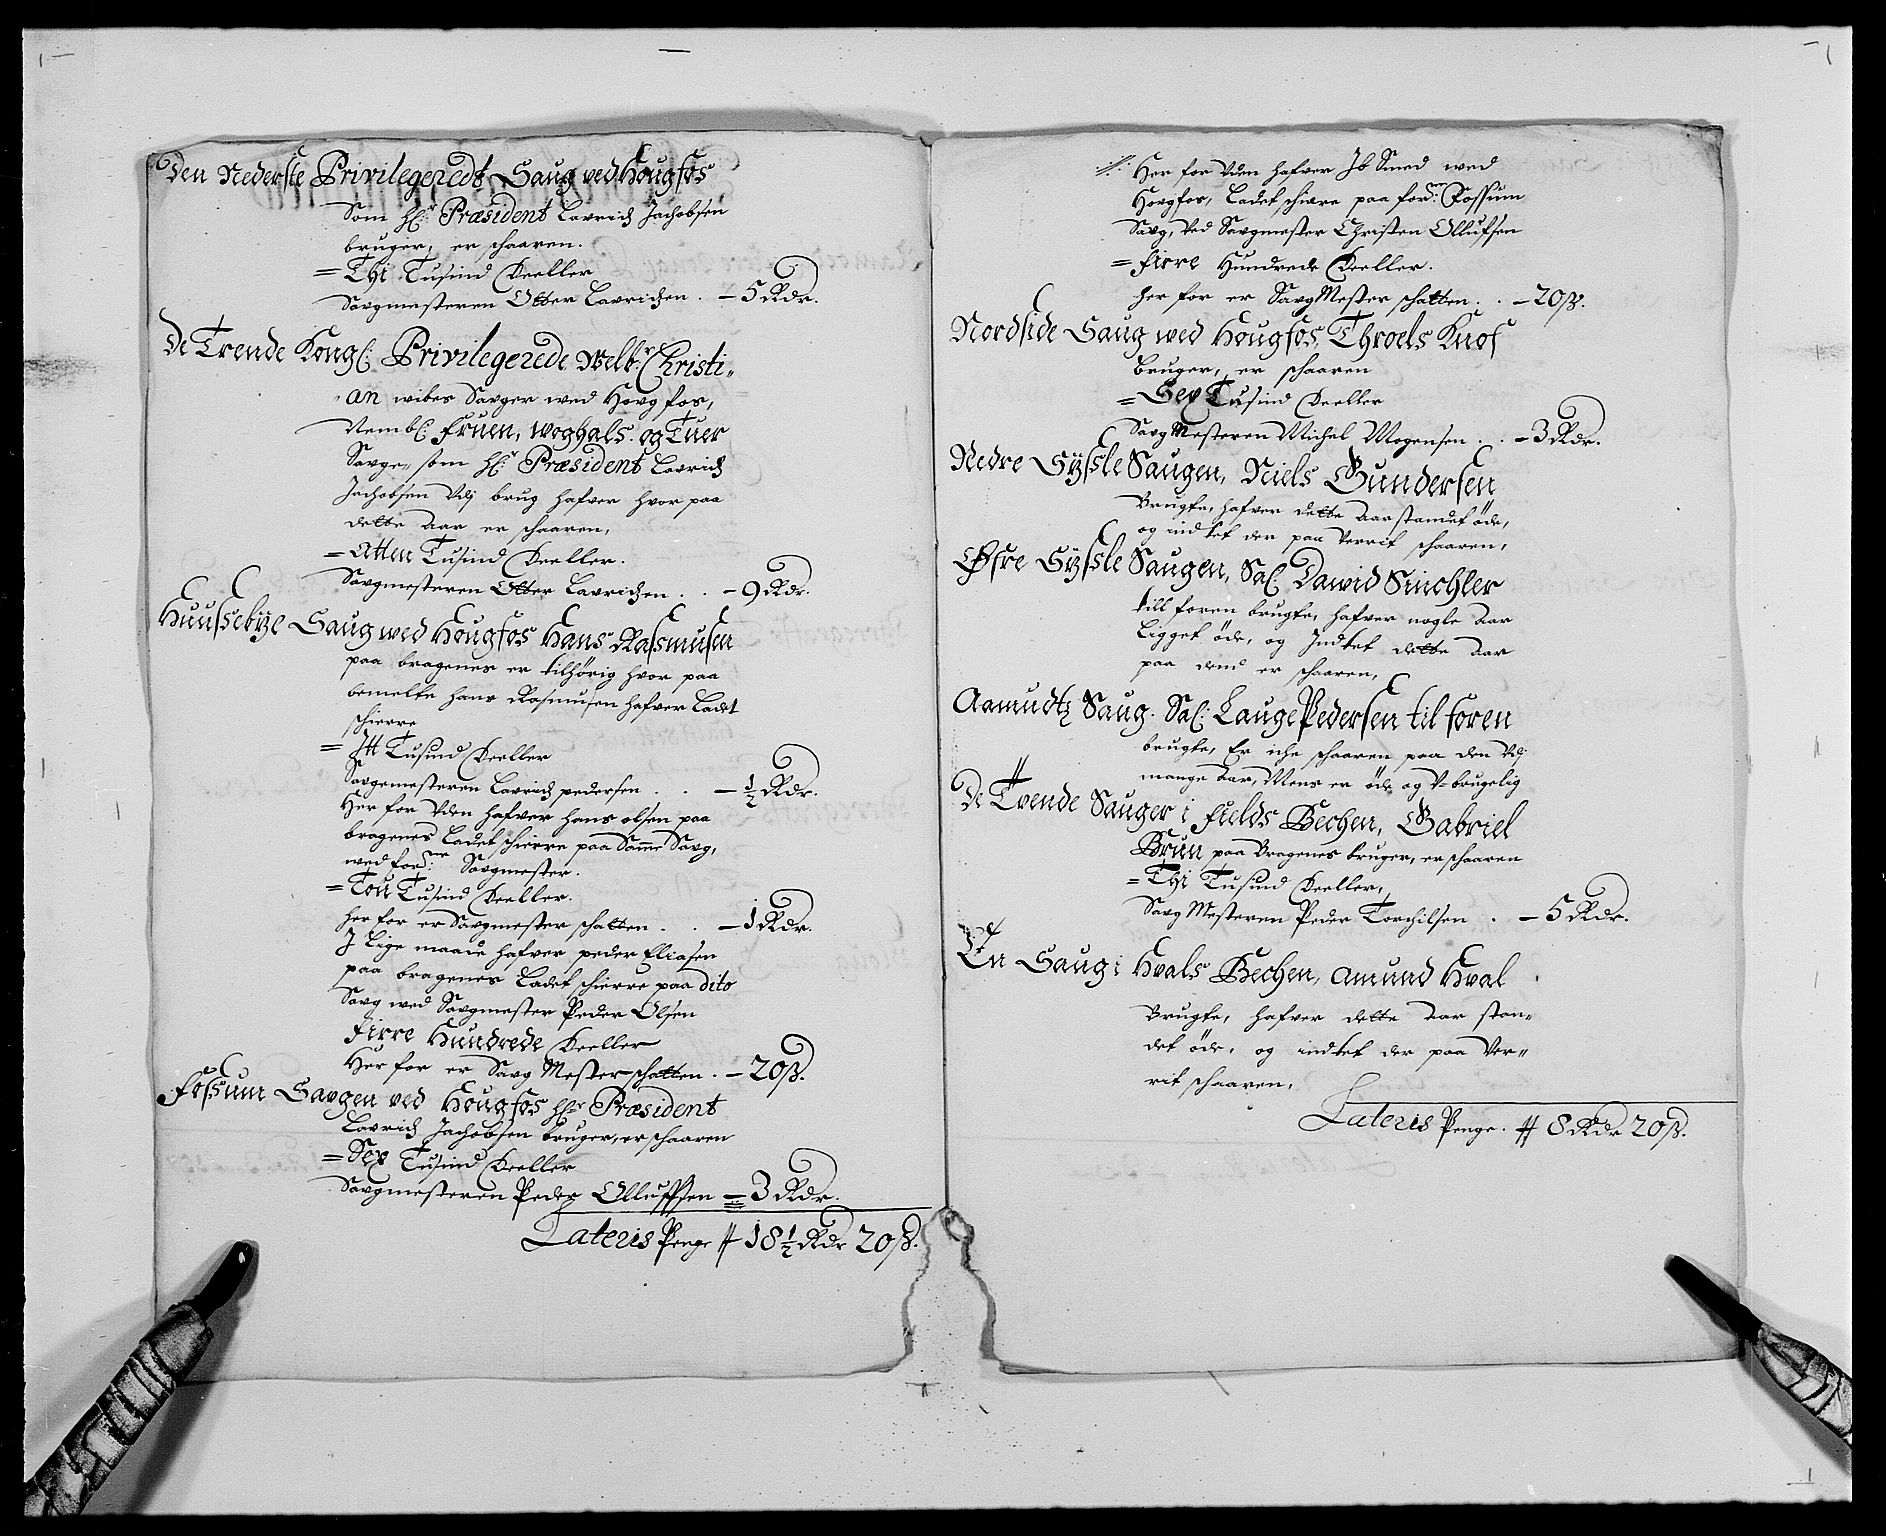 Den Nederste Privilegeredt Saug ved Hougfos
Som Hr: Præsident Lavrids Jachobsen
bruger, er schaaren.
= Thi Tusind Deeller
Savgmesteren Otter Lavridzen . – 5 Rdr.
De Trende Kongl: Privilegerede Welb:r Christi„
„an wibes Savger wed Hovgfos,
Nembl: Fruen, woghals. og Tuer
Savge„ som Hr: Præsident Lavrids
Jachobsen Udj brug hafver hvor paa
dette Aar er schaaren,
= Atten Tusind Deeller.
Savgmesteren Otter Lavridzen . . – 9 Rdr.
Huussebÿe Saug wed Hougfos Hans Rasmusen
paa bragenes er tilhörig hvor paa
bemelte hans Rasmusen hafver Ladet
schierre
= Itt Tusind Deeller
Savgemesteren Lavrids pedersen . . – ½ Rdr.
Her for Uden hafver hans olsen paa
bragenes Ladet schierre paa Samme Savg,
wed for:ne Savgmester.
= Tou Tusind Deeller.
her for er Savgmester schatten . . – 1 Rdr.
J Lige maade hafver peder Eliasen
paa bragenes Ladet schierre paa dito
Savg wed Savgmester Peder Olsen
Firre Hundrede Deeller
Her for er Savg Mester schatten . – 20 ß.
Fossum Savgen ved Hougfos Hr: Præsident
Lavrids Jachobsen bruger, er schaaren
= Sex Tusind Deeller
Savgmesteren Peder Olluffsen = 3 Rdr.
Lateris Penge # 18½ Rdr 20 ß.
Her for Uden hafver Jb Smed wed
Hovgfos, Ladet schiere paa for:ne Fossum
Savg, Ved Savgmester Christen Ollufsen
= Firre Hundrede Deeller.
her for er Savg Mester schatten . . – 20 ß.
Nordside Saug wed Hougfos, Throels Knof
Bruger, er schaaren
= Sex Tusind Deeller
Savg Mesteren Michel Mogensen . . – 3 Rdr.
Nedre Gÿssle Saugen, Niels Gundersen
Brugte, hafver dette Aar standet öde,
og indtet der paa Verrit schaaren,
Øfre Gÿssle Saugen, Sal: Dawid Sinchler
till foren brugte, hafver nogle Aar
Ligget öde, og Indtet dette Aar
paa dend er schaaren,
Aamudtz Saug. Sal: Lauge Pedersen til foren
brugte, Er iche schaaren paa den Udj
mange Aar, Mens er öde og V-brugelig
De Tvende Sauger i Fields Bechen, Gabriel
Brun paa Bragenes bruger, er schaaren
= Thi Tusind Deeller,
Savg Mesteren Peder Torchilsen . – 5 Rdr.
En Saug i Hvals Bechen, Amund Hval
Brugte, hafver dette Aar stan„
det öde, og indtet der paa Ver„
rit schaaren,
Lateris Penge. # 8 Rdr 20 ß.